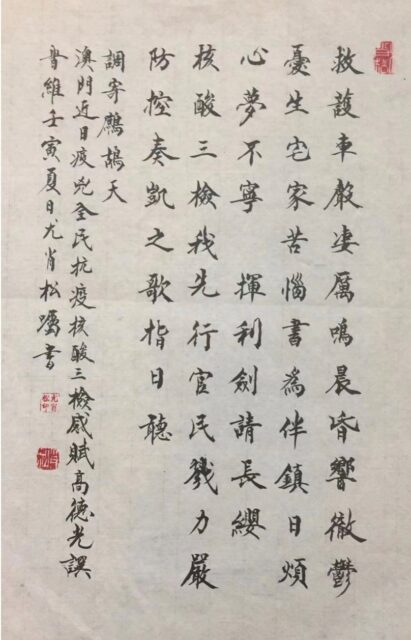 救護車聲淒厲鳴晨昏響徹鬱
憂生宅家苦惱書為伴鎮日煩
心夢不寧　揮利劍請長纓
核酸三檢我先行官民戮力嚴
防控奏凱之歌指日聽
調寄鷓鴣天
澳門近日疫兇全民抗疫核酸三檢感賦高德光譔
旹維壬寅夏日尤肖松囑書